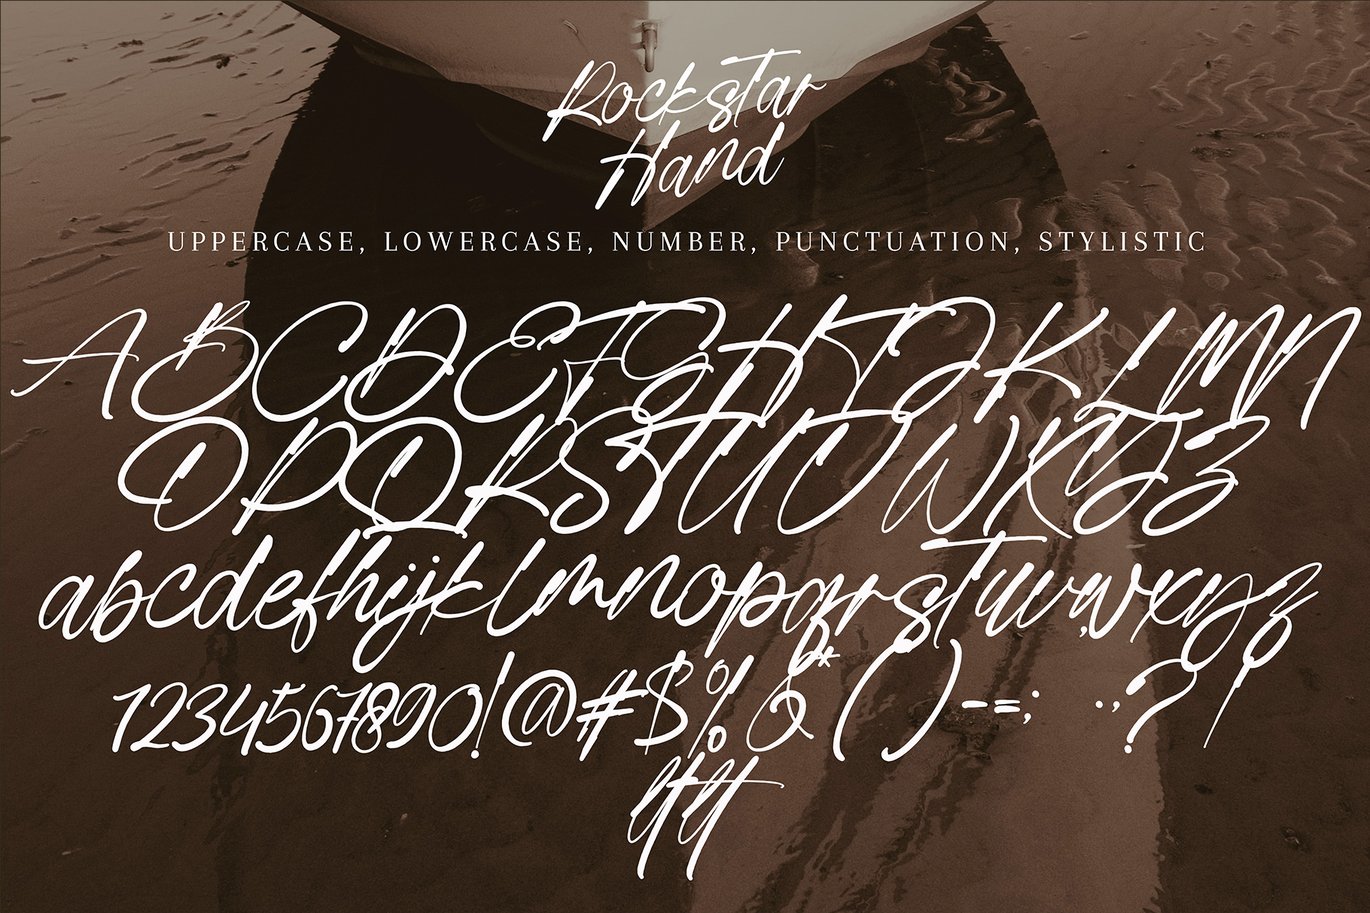 Rockstar
Hand
UPPERCASE, LOWERCASE, NUMBER, PUNCTUATION, STYLISTIC
ABCDEFGHIJKLMN
OPQRSTUVWXYZ
abcdefhijklmnopqrstuvwxyz
1234567890!@#$%&*()-=; .,?/